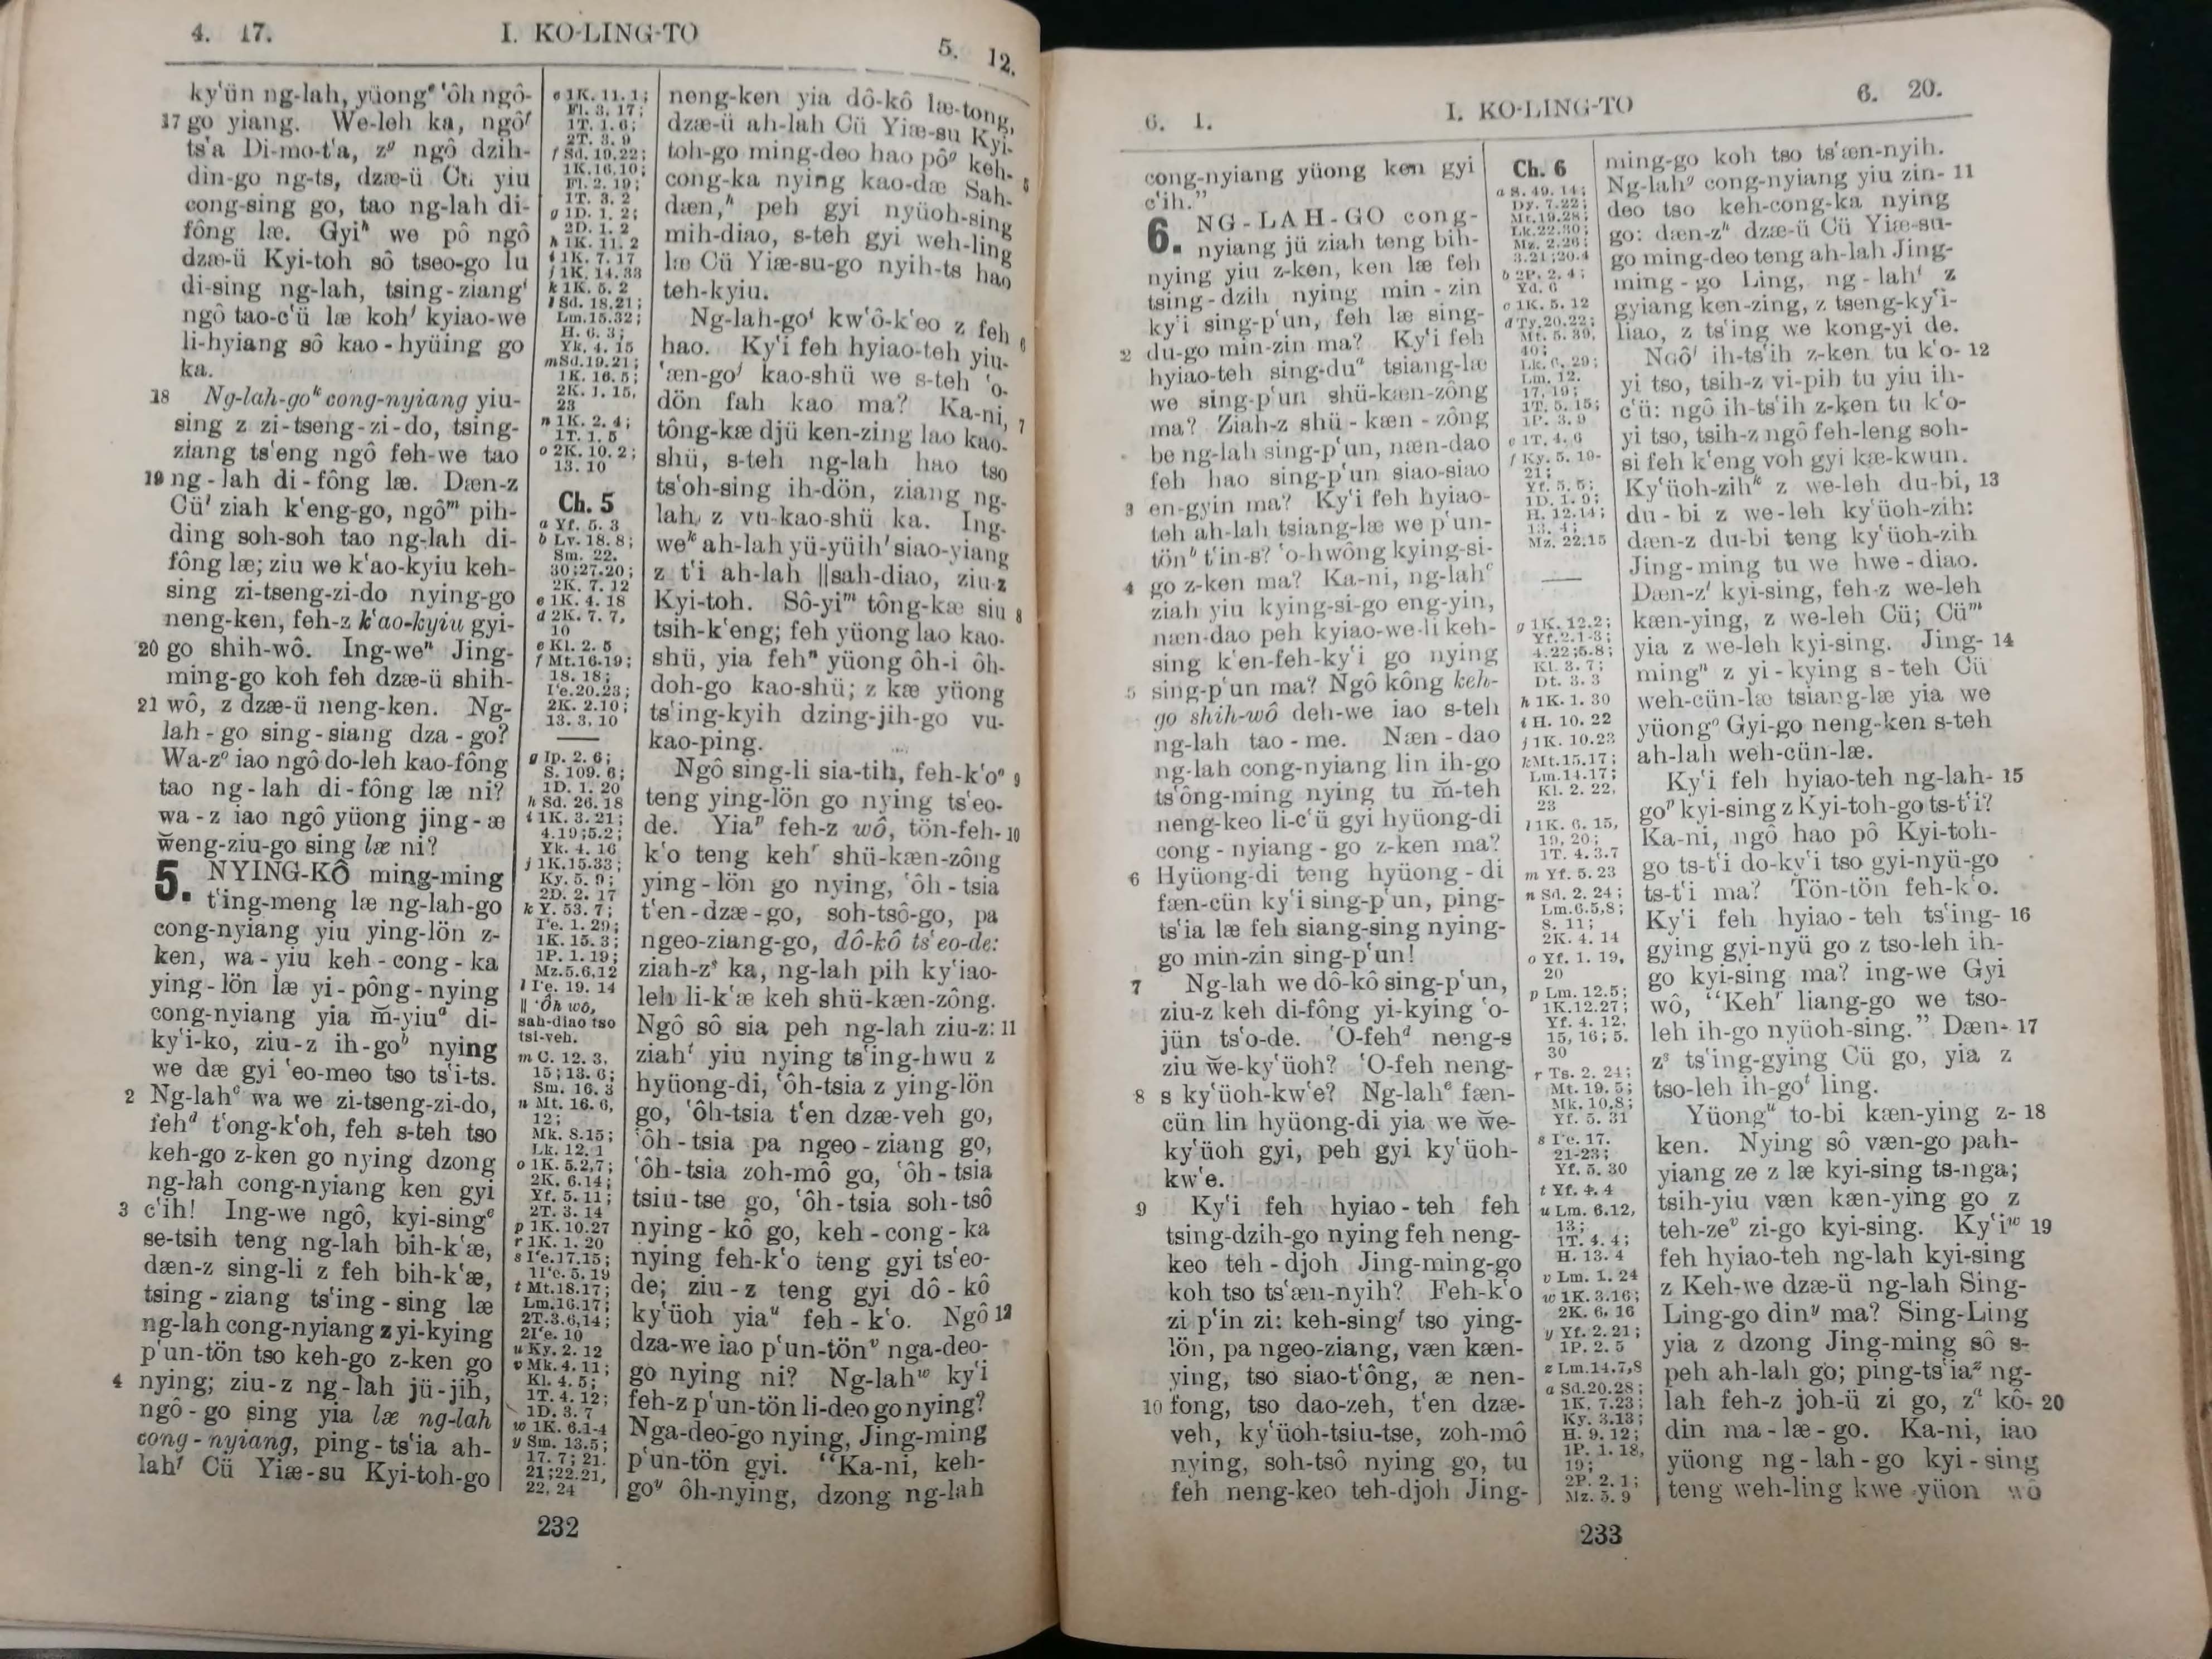 4. 17.
I. KO-LING-TO
5. 12.
ky'ün ng-lah, yüongᵉ 'ôh ngô-
17 go yiang. We-leh ka, ngôᶠ
ts'a Di-mo-t'a, zᵍ ngô dzih-
din-go ng-ts, dzæ-ü Cü yiu
cong-sing go, tao ng-lah di-
fông læ. Gyiʰ we pô ngô
dzæ-ü Kyi-toh sô tseo-go lu
di-sing ng-lah, tsing-ziangⁱ
ngô tao-c'ü læ kohʲ kyiao-we
li-hyiang sô kao-hyüing go
ka.
18 Ng-lah-goᵏ cong-nyiang yiu-
sing z zi-tseng-zi-do, tsing-
ziang ts'eng ngô feh-we tao
19 ng-lah di-fông læ. Dæn-z
Cüˡ ziah k'eng-go, ngôᵐ pih-
ding soh-soh tao ng-lah di-
fông læ; ziu we k'ao-kyiu keh-
sing zi-tseng-zi-do nying-go
neng-ken, feh-z k'ao-kyiu gyi-
20 go shih-wô. Ing-weⁿ Jing-
ming-go koh feh dzæ-ü shih-
21 wô, z dzæ-ü neng-ken. Ng-
lah-go sing-siang dza-go?
Wa-zᵒ iao ngô do-leh kao-fông
tao ng-lah di-fông læ ni?
wa-z iao ngô yüong jing-æ
w̆eng-ziu-go sing læ ni?
5. NYING-KÔ ming-ming
t'ing-meng læ ng-lah-go
cong-nyiang yiu ying-lön z-
ken, wa-yiu keh-cong-ka
ying-lön læ yi-pông-nying
cong-nyiang yia m̆-yiuᵃ di-
ky'i-ko, ziu-z ih-goᵇ nying
we dæ gyi 'eo-meo tso ts'i-ts.
2 Ng-lahᶜ wa we zi-tseng-zi-do,
fehᵈ t'ong-k'oh, feh s-teh tso
keh-go z-ken go nying dzong
ng-lah cong-nyiang ken gyi
3 c'ih! Ing-we ngô, kyi-singᵉ
se-tsih teng ng-lah bih-k'æ,
dæn-z sing-li z feh bih-k'æ,
tsing-ziang ts'ing-sing læ
ng-lah cong-nyiang z yi-kying
p'un-tön tso keh-go z-ken go
4 nying; ziu-z ng-lah jü-jih,
ngô-go sing yia læ ng-lah
cong-nyiang, ping-ts'ia ah-
lahᶠ Cü Yiæ-su Kyi-toh-go
e 1K. 11. 1;
Fl. 3. 17;
1T. 1. 6;
2T. 3. 9
f Sd. 19.22;
1K.16.10;
Fl. 2. 19;
1T. 3. 2
g 1D. 1. 2;
2D. 1. 2
h 1K. 11. 2
i 1K. 7. 17
j 1K. 14. 33
k 1K. 5. 2
l Sd. 18.21;
Lm.15.32;
H. 6. 3;
Yk. 4. 15
m Sd. 19.21;
1K. 16. 5;
2K. 1. 15,
23
n 1K. 2. 4;
1T. 1. 5
o 2K. 10. 2;
13. 10
Ch. 5
a Yf. 5. 3
b Lv. 18. 8;
Sm. 22.
30;27.20;
2K. 7. 12
c 1K. 4. 18
d 2K. 7. 7,
10
e Kl. 2. 5
f Mt.16.19;
18. 18;
I'e.20.23;
2K. 2.10;
13. 3, 10
g Ip. 2. 6;
S. 109. 6;
1D. 1. 20
h Sd. 26. 18
i 1K. 3. 21;
4.19;5.2;
Yk. 4. 16
j 1K.15.33;
Ky. 5. 9;
2D. 2. 17
k Y. 53. 7;
I'e. 1. 29;
1K. 15. 3;
1P. 1. 19;
Mz.5.6,12
l I'e. 19. 14
‖ 'Ôh wô,
sah-diao tso
tsi-veh.
m C. 12. 3,
15; 13. 6;
Sm. 16. 3
n Mt. 16. 6,
12;
Mk. 8.15;
Lk. 12. 1
o 1K. 5.2,7;
2K. 6.14;
Yf. 5. 11;
2T. 3. 14
p 1K. 10.27
r 1K. 1. 20
s I'e.17.15;
1I'e. 5. 19
t Mt.18.17;
Lm.16.17;
2T.3.6,14;
2I'e. 10
u Ky. 2. 12
v Mk. 4. 11;
Kl. 4. 5;
1T. 4. 12;
1D. 3. 7
w 1K. 6.1-4
y Sm. 13.5;
17. 7; 21.
21;22.21,
22, 24
neng-ken yia dô-kô læ-tong,
dzæ-ü ah-lah Cü Yiæ-su Kyi-
toh-go ming-deo hao pôᵍ keh- 5
cong-ka nying kao-dæ Sah-
dæn,ʰ peh gyi nyüoh-sing
mih-diao, s-teh gyi weh-ling
læ Cü Yiæ-su-go nyih-ts hao
teh-kyiu.
Ng-lah-goⁱ kw'ô-k'eo z feh 6
hao. Ky'i feh hyiao-teh yiu-
'æn-goʲ kao-shü we s-teh 'o-
dön fah kao ma? Ka-ni, 7
tông-kæ djü ken-zing lao kao-
shü, s-teh ng-lah hao tso
ts'oh-sing ih-dön, ziang ng-
lah z vu-kao-shü ka. Ing-
weᵏ ah-lah yü-yüihˡ siao-yiang
z t'i ah-lah ‖sah-diao, ziu-z
Kyi-toh. Sô-yiᵐ tông-kæ siu 8
tsih-k'eng; feh yüong lao kao-
shü, yia fehⁿ yüong ôh-i ôh-
doh-go kao-shü; z kæ yüong
ts'ing-kyih dzing-jih-go vu-
kao-ping.
Ngô sing-li sia-tih, feh-k'oᵒ 9
teng ying-lön go nying ts'eo-
de. Yiaᵖ feh-z wô, tön-feh- 10
k'o teng kehʳ shü-kæn-zông
ying-lön go nying, 'ôh-tsia
t'en-dzæ-go, soh-tsô-go, pa
ngeo-ziang-go, dô-kô ts'eo-de:
ziah-zˢ ka, ng-lah pih ky'iao-
leh li-k'æ keh shü-kæn-zông.
Ngô sô sia peh ng-lah ziu-z: 11
ziahᵗ yiu nying ts'ing-hwu z
hyüong-di, 'ôh-tsia z ying-lön
go, 'ôh-tsia t'en dzæ-veh go,
'ôh-tsia pa ngeo-ziang go,
'ôh-tsia zoh-mô go, 'ôh-tsia
tsiu-tse go, 'ôh-tsia soh-tsô
nying-kô go, keh-cong-ka
nying feh-k'o teng gyi ts'eo-
de; ziu-z teng gyi dô-kô
ky'üoh yiaᵘ feh-k'o. Ngô 12
dza-we iao p'un-tönᵛ nga-deo-
go nying ni? Ng-lahʷ ky'i
feh-z p'un-tön li-deo go nying?
Nga-deo-go nying, Jing-ming
p'un-tön gyi. “Ka-ni, keh-
goʸ ôh-nying, dzong ng-lah
232
6. 1.
I. KO-LING-TO
6. 20.
cong-nyiang yüong ken gyi
c'ih.”
6. NG-LAH-GO cong-
nyiang jü ziah teng bih-
nying yiu z-ken, ken læ feh
tsing-dzih nying min-zin
ky'i sing-p'un, feh læ sing-
2 du-go min-zin ma? Ky'i feh
hyiao-teh sing-duᵃ tsiang-læ
we sing-p'un shü-kæn-zông
ma? Ziah-z shü-kæn-zông
be ng-lah sing-p'un, næn-dao
feh hao sing-p'un siao-siao
3 en-gyin ma? Ky'i feh hyiao-
teh ah-lah tsiang-læ we p'un-
tönᵇ t'in-s? 'o-hwông kying-si-
4 go z-ken ma? Ka-ni, ng-lahᶜ
ziah yiu kying-si-go eng-yin,
næn-dao peh kyiao-we-li keh-
sing k'en-feh-ky'i go nying
5 sing-p'un ma? Ngô kông keh-
go shih-wô deh-we iao s-teh
ng-lah tao-me. Næn-dao
ng-lah cong-nyiang lin ih-go
ts'ông-ming nying tu m̆-teh
neng-keo li-c'ü gyi hyüong-di
cong-nyiang-go z-ken ma?
6 Hyüong-di teng hyüong-di
fæn-cün ky'i sing-p'un, ping-
ts'ia læ feh siang-sing nying-
go min-zin sing-p'un!
7 Ng-lah we dô-kô sing-p'un,
ziu-z keh di-fông yi-kying 'o-
jün ts'o-de. 'O-fehᵈ neng-s
ziu w̆e-ky'üoh? 'O-feh neng-
8 s ky'üoh-kw'e? Ng-lahᵉ fæn-
cün lin hyüong-di yia we w̆e-
ky'üoh gyi, peh gyi ky'üoh-
kw'e.
9 Ky'i feh hyiao-teh feh
tsing-dzih-go nying feh neng-
keo teh-djoh Jing-ming-go
koh tso ts'æn-nyih? Feh-k'o
zi p'in zi: keh-singᶠ tso ying-
lön, pa ngeo-ziang, væn kæn-
ying, tso siao-t'ông, æ nen-
10 fong, tso dao-zeh, t'en dzæ-
veh, ky'üoh-tsiu-tse, zoh-mô
nying, soh-tsô nying go, tu
feh neng-keo teh-djoh Jing-
Ch. 6
a S. 49. 14;
Dy. 7.22;
Mt.19.28;
Lk.22.30;
Mz. 2.26;
3.21;20.4
b 2P. 2. 4;
Yd. 6
c 1K. 5. 12
d Ty.20.22;
Mt. 5. 39,
40;
Lk. 6, 29;
Lm. 12.
17, 19;
1T. 5. 15;
1P. 3. 9
e 1T. 4. 6
f Ky. 5. 19-
21;
Yf. 5, 5;
1D. 1. 9;
H. 12.14;
13. 4;
Mz. 22.15
g 1K. 12.2;
Yf.2.1-3;
4.22;5.8;
Kl. 3. 7;
Dt. 3. 3
h 1K. 1. 30
i H. 10. 22
j 1K. 10.23
k Mt.15.17;
Lm.14.17;
Kl. 2. 22,
23
l 1K. 6. 15,
19, 20;
1T. 4.3.7
m Yf. 5. 23
n Sd. 2. 24;
Lm.6.5,8;
8. 11;
2K. 4. 14
o Yf. 1. 19,
20
p Lm. 12.5;
1K.12.27;
Yf. 4. 12,
15, 16; 5.
30
r Ts. 2. 24;
Mt. 19. 5;
Mk. 10.8;
Yf. 5. 31
s I'e. 17.
21-23;
Yf. 5. 30
t Yf. 4. 4
u Lm. 6.12,
13;
1T. 4. 4;
H. 13. 4
v Lm. 1. 24
w 1K. 3.16;
2K. 6. 16
y Yf. 2. 21;
1P. 2. 5
z Lm.14.7,8
a Sd.20.28;
1K. 7.23;
Ky. 3.13;
H. 9. 12;
1P. 1. 18,
19;
2P. 2. 1;
Mz. 5. 9
ming-go koh tso ts'æn-nyih.
Ng-lahᵍ cong-nyiang yiu zin- 11
deo tso keh-cong-ka nying
go: dæn-zʰ dzæ-ü Cü Yiæ-su-
go ming-deo teng ah-lah Jing-
ming-go Ling, ng-lahⁱ z
gyiang ken-zing, z tseng-ky'i-
liao, z ts'ing we kong-yi de.
Ngôʲ ih-ts'ih z-ken tu k'o- 12
yi tso, tsih-z vi-pih tu yiu ih-
c'ü: ngô ih-ts'ih z-ken tu k'o-
yi tso, tsih-z ngô feh-leng soh-
si feh k'eng voh gyi kæ-kwun.
Ky'üoh-zihᵏ z we-leh du-bi, 13
du-bi z we-leh ky'üoh-zih:
dæn-z du-bi teng ky'üoh-zih
Jing-ming tu we hwe-diao.
Dæn-zˡ kyi-sing, feh-z we-leh
kæn-ying, z we-leh Cü; Cüᵐ
yia z we-leh kyi-sing. Jing- 14
mingⁿ z yi-kying s-teh Cü
weh-cün-læ tsiang-læ yia we
yüongᵒ Gyi-go neng-ken s-teh
ah-lah weh-cün-læ.
Ky'i feh hyiao-teh ng-lah- 15
goᵖ kyi-sing z Kyi-toh-go ts-t'i?
Ka-ni, ngô hao pô Kyi-toh-
go ts-t'i do-ky'i tso gyi-nyü-go
ts-t'i ma? Tön-tön feh-k'o.
Ky'i feh hyiao-teh ts'ing- 16
gying gyi-nyü go z tso-leh ih-
go kyi-sing ma? ing-we Gyi
wô, “Kehʳ liang-go we tso-
leh ih-go nyüoh-sing.” Dæn- 17
zˢ ts'ing-gying Cü go, yia z
tso-leh ih-goᵗ ling.
Yüongᵘ to-bi kæn-ying z- 18
ken. Nying sô væn-go pah-
yiang ze z læ kyi-sing ts-nga;
tsih-yiu væn kæn-ying go z
teh-zeᵛ zi-go kyi-sing. Ky'iʷ 19
feh hyiao-teh ng-lah kyi-sing
z Keh-we dzæ-ü ng-lah Sing-
Ling-go dinʸ ma? Sing-Ling
yia z dzong Jing-ming sô s-
peh ah-lah go; ping-ts'iaᶻ ng-
lah feh-z joh-ü zi go, zᵃ kô- 20
din ma-læ-go. Ka-ni, iao
yüong ng-lah-go kyi-sing
teng weh-ling kwe yüon wô
233